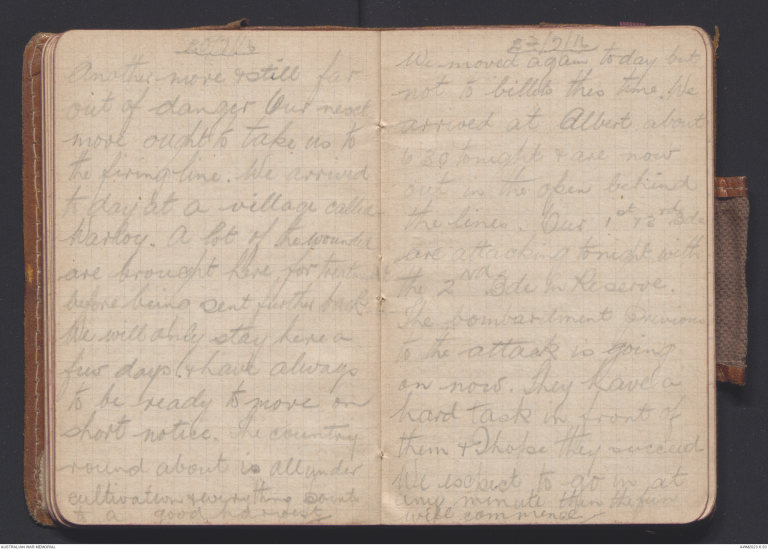 20/7/16
Another move & still far
out of danger Our next
move ought to take us to
the firing line. We arrived
to day at a village called
Warloy. A lot of the wounded
are brought here for treatment
before being sent further back
We will only stay here a
few days & have always
to be ready to move on
short notice. The country
round about is all under
cultivation & everything points
to a good harvest
We moved again to day but
not to billets this time. We
arrived at Albert about
6 30 tonight & are now
out in the open behind
the lines. Our 1st & 3rd Bde
are attacking tonight with
the 2nd Bde in Reserve.
The bombardment previous
to the attack is going
on now. They have a
hard task in front of
them & I hope they succeed
We expect to go in at
any minute then the fun
will commence
AUSTRALIAN WAR MEMORIAL